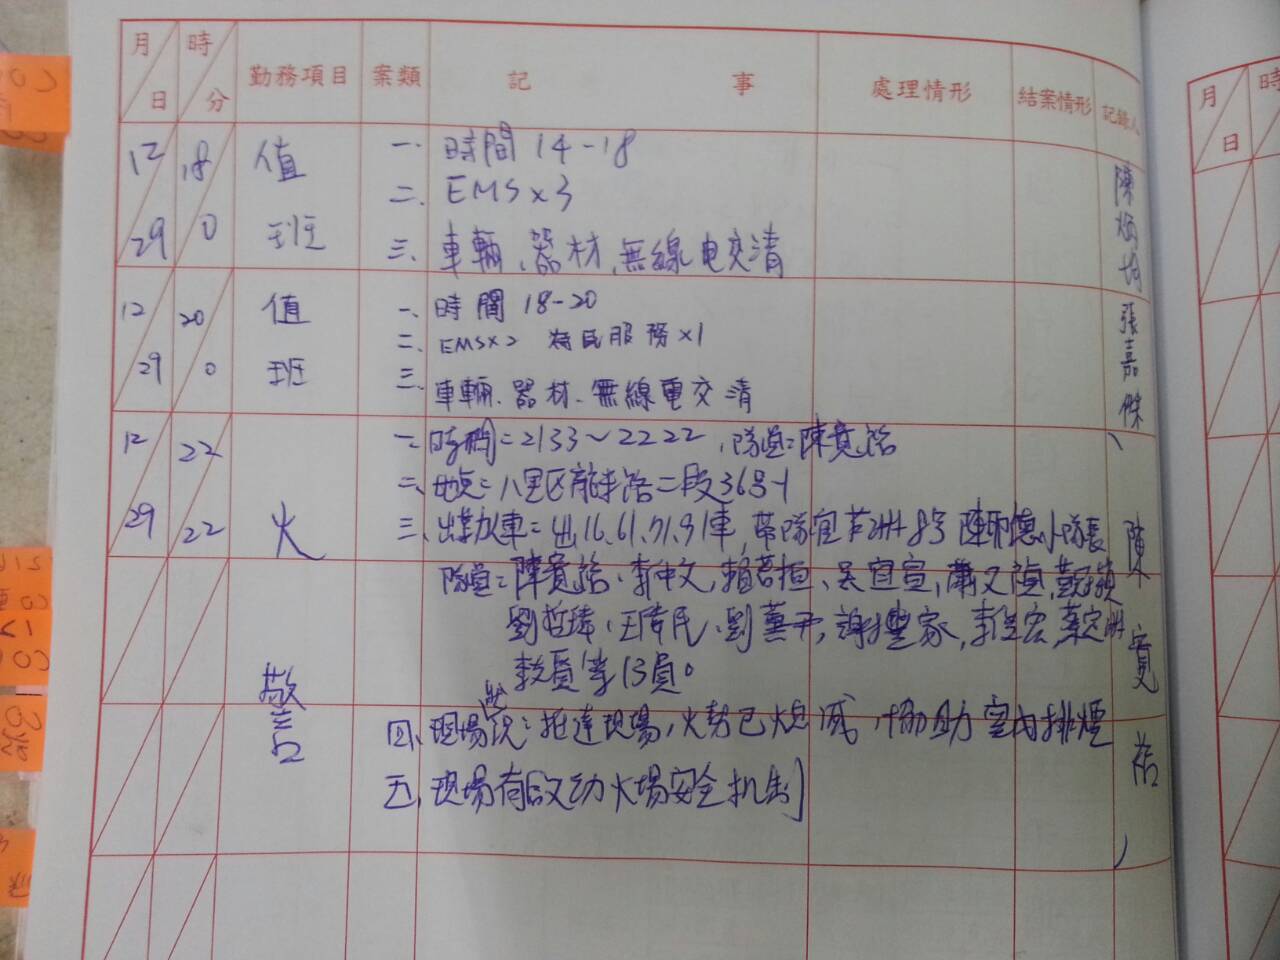 月 日 時 分 勤務項目 案類 記 事 處理情形 結案情形 記錄人
12 29 18 0 值班 陳炳均
一、時間 14-18
二、EMS×3
三、車輛、器材、無線電交清
12 29 20 0 值班 張嘉傑
一、時間 18-20
二、EMS×2 為民服務×1
三、車輛、器材、無線電交清
12 29 22 22 火警 陳寬裕
一、時間=2133~2222,隊員=陳寬裕
二、地点=八里区龍米路二段36号-1
三、出動車=出16,61,71,91車,帶隊官 8号 小隊長
隊員=陳寬裕、李中文,
劉哲瑋、王偉民、劉
等13員。
四、現場狀況:抵達現場,火勢已熄滅,協助室內排煙
五、現場有啟动火場安全机制
月 日 時